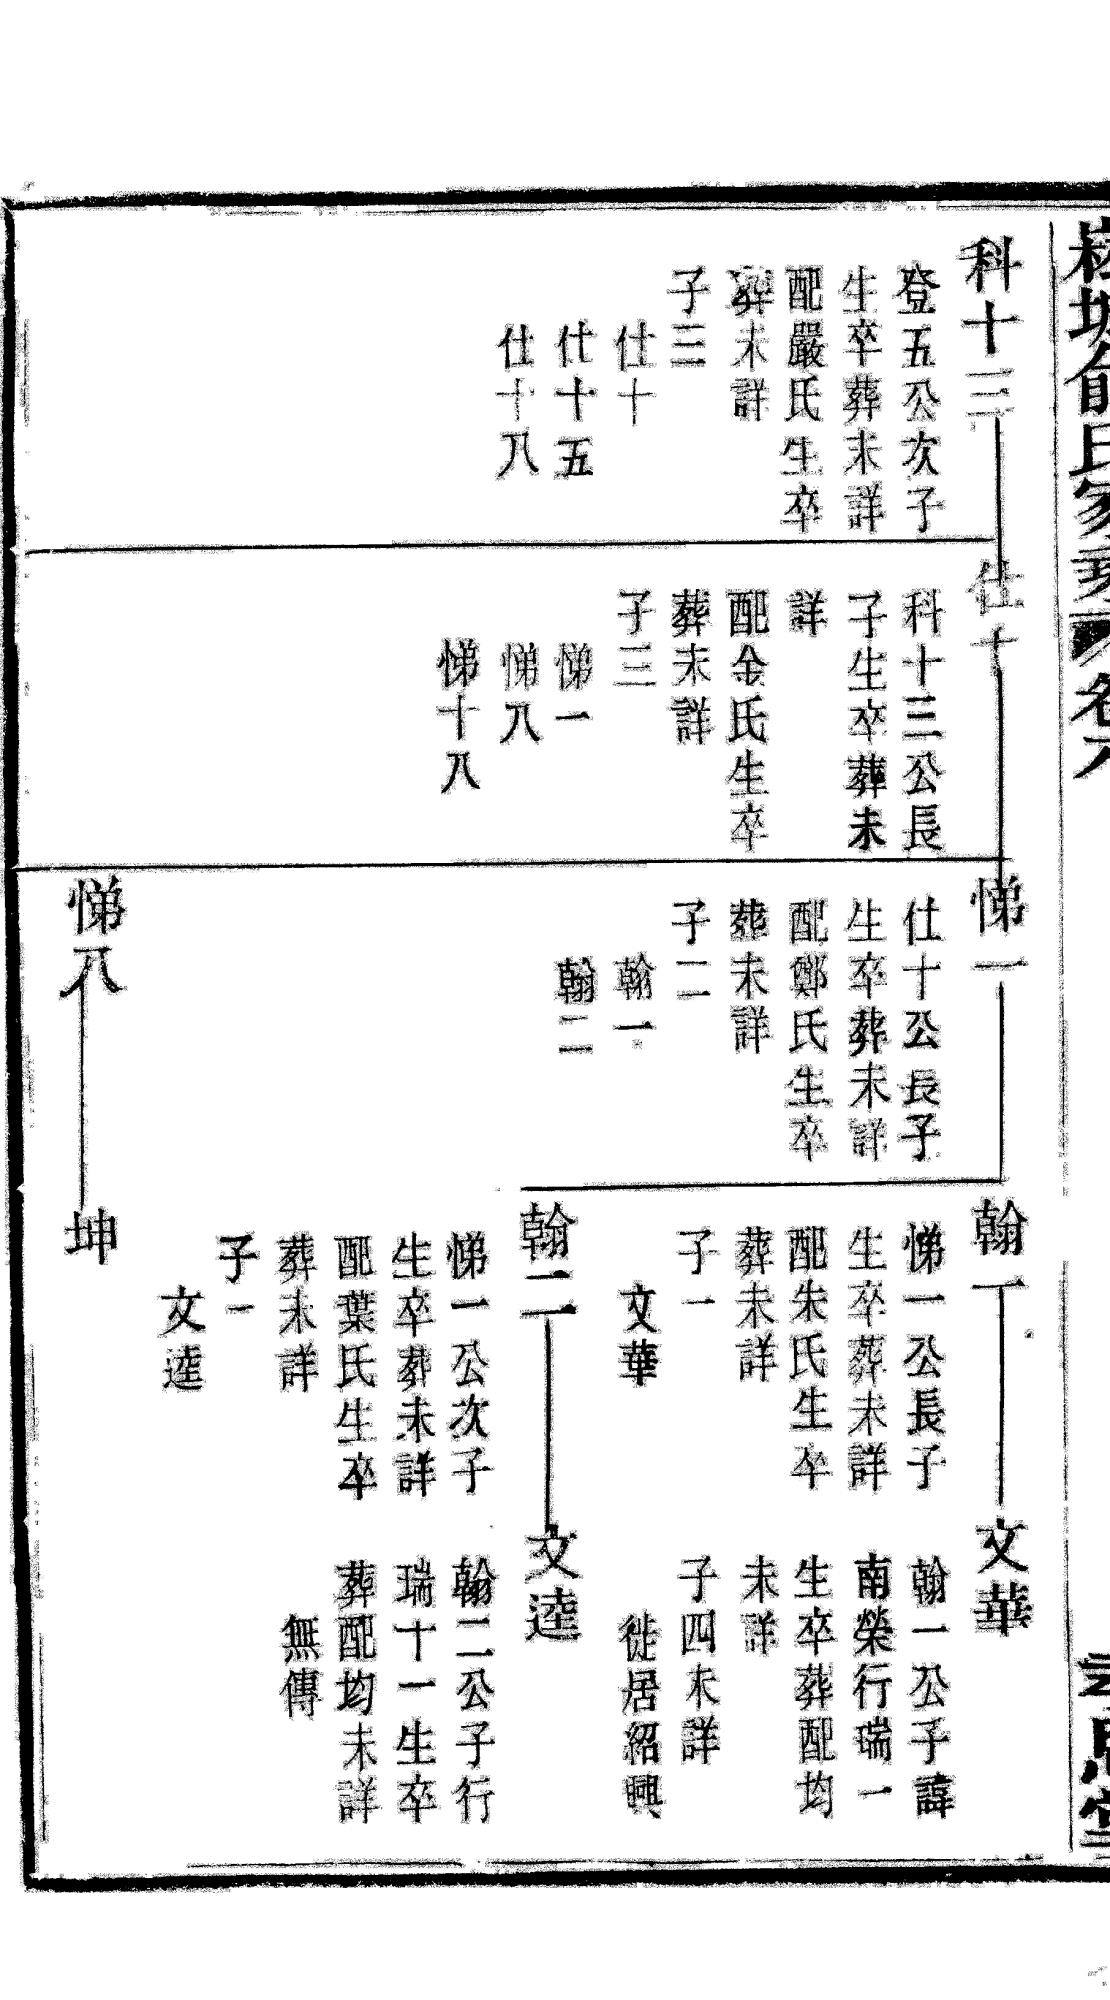 俞氏家乘
卷
思堂
科十三
登五公次子
生卒葬未詳
配嚴氏生卒
葬未詳
子三
仕十
仕十五
仕十八
仕十
科十三公長
子生卒葬未
詳
配金氏生卒
葬未詳
子三
悌一
悌八
悌十八
悌一
仕十公長子
生卒葬未詳
配鄭氏生卒
葬未詳
子二
翰一
翰二
悌八
翰一
悌一公長子
生卒葬未詳
配朱氏生卒
葬未詳
子一
文華
翰二
悌一公次子
生卒葬未詳
配葉氏生卒
葬未詳
子一
文逵
坤
文華
翰一公子諱
南榮行瑞一
生卒葬配均
未詳
子四未詳
徙居紹興
文逵
翰二公子行
瑞十一生卒
葬配均未詳
無傳